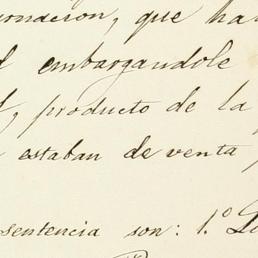 que ha
embargandole
producto de la
estaban de venta
sentencia son: 1.º